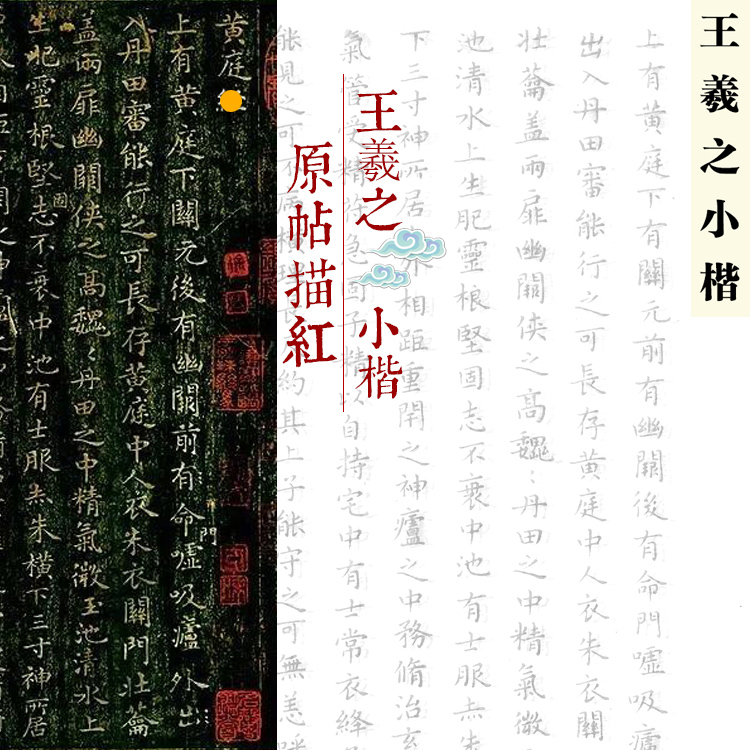 王羲之小楷
上有黄庭下有關元前有幽關後有命門噓吸廬
出入丹田審能行之可長存黄庭中人衣朱衣關
壯籥盖兩扉幽關俠之髙巍〻丹田之中精氣微
池清水上生肥靈根堅固志不衰中池有士服赤朱
下三寸神所居外相距重閉之神廬之中務脩治玄
氣管受精符急固子精以自持宅中有士常衣絳
能見之可不病橫理長約其上子能守之可無恙
王羲之小楷
原帖描紅
黄庭
上有黄庭下關元後有幽關前有命門噓吸廬外出
入丹田審能行之可長存黄庭中人衣朱衣關門壯籥
盖兩扉幽關俠之髙巍〻丹田之中精氣微玉池清水上
生肥靈根堅固志不衰中池有士服赤朱橫下三寸神所居